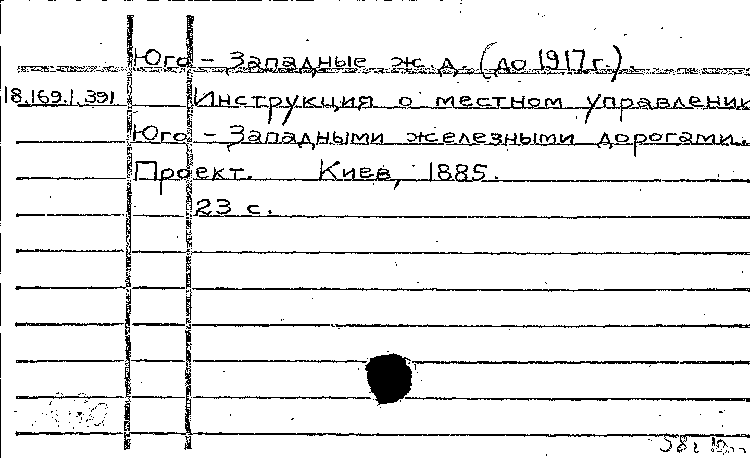 Юго - Западные ж.д. (до 1917 г.).
18.169.1.391 Инструкция о местном управлении
Юго - Западными железными дорогами.
Проект. Киев, 1885.
23 с.